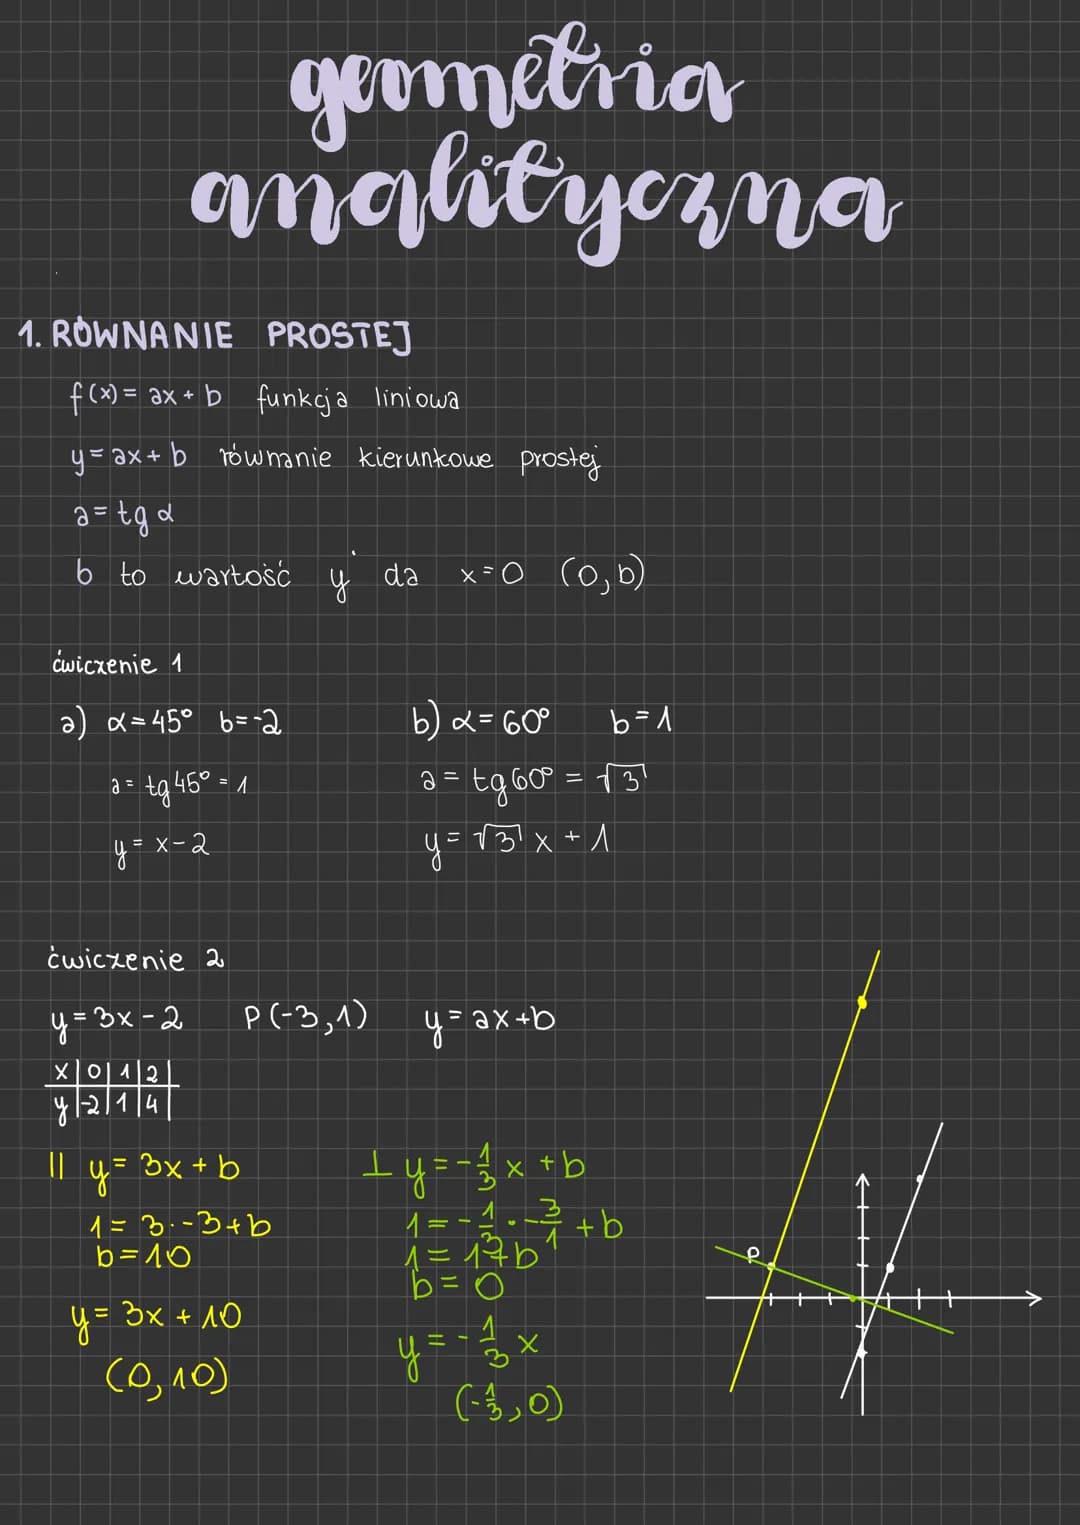 geometria
analityczna
1. RÓWNANIE PROSTEJ
f(x) = ax + b funkcja liniowa
y = ax + b równanie kierunkowe prostej
a = tg α
b to wartość y da x = 0 (0, b)
ćwiczenie 1
a) α = 45° b = -2
a = tg 45° = 1
y = x - 2
b) α = 60° b = 1
a = tg 60° = √3
y = √3 x + 1
ćwiczenie 2
y = 3x - 2 P(-3, 1) y = ax + b
x | 0 | 1 | 2 |
y | -2 | 1 | 4 |
|| y = 3x + b
1 = 3 · -3 + b
b = 10
y = 3x + 10
(0, 10)
⊥ y = -1/3 x + b
1 = -1/3 · -3/1 + b
1 = 1 + b
b = 0
y = -1/3 x
(-1/3, 0)
P